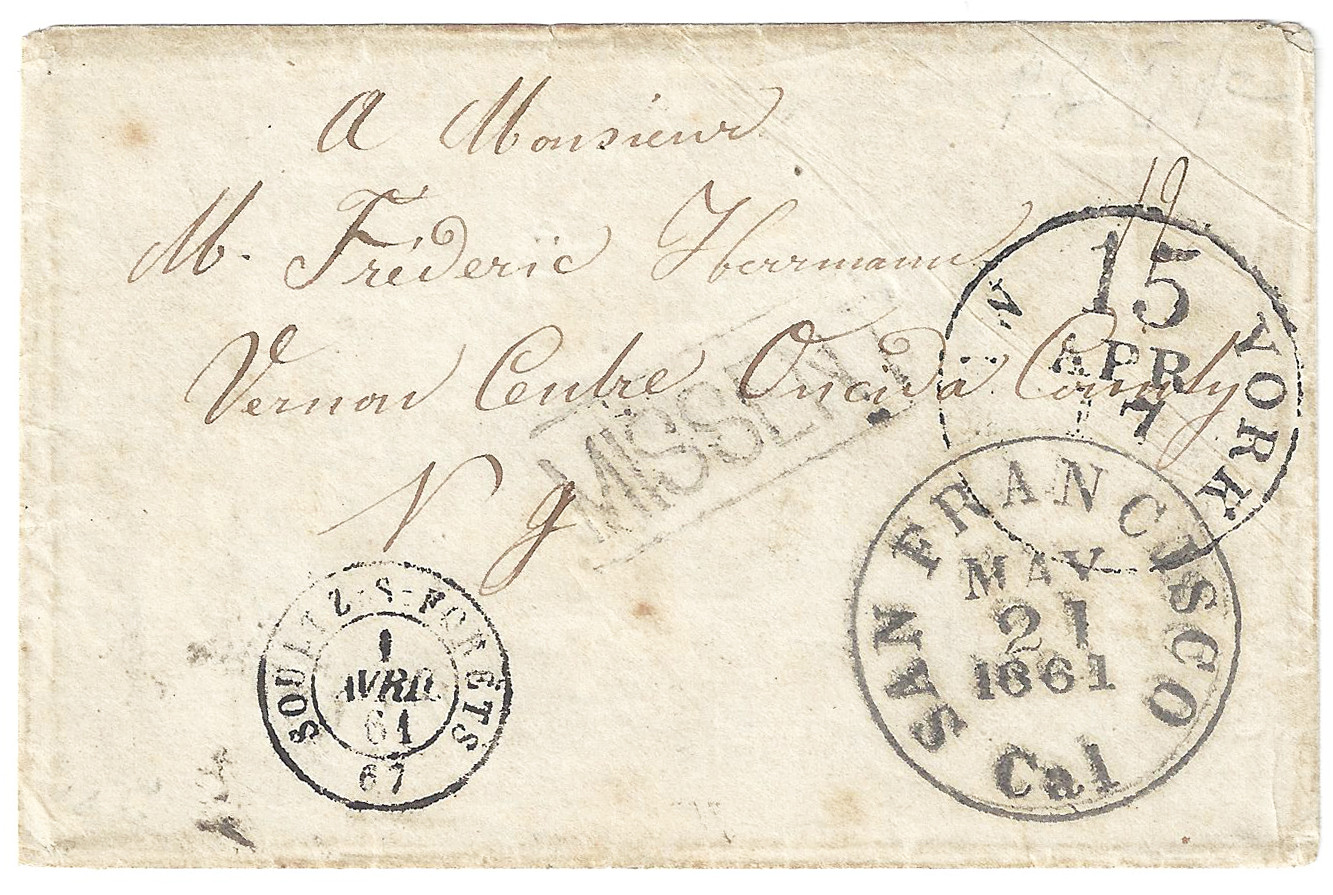 A Monsieur
M. Fréderic Herrmann
Vernon Centre Oneida County
N Y
MISSENT
N YORK
15
APR
17
SAN FRANCISCO
MAY
21
1861
Cal
SOULTZ-S-FORETS
1
AVRIL
61
67